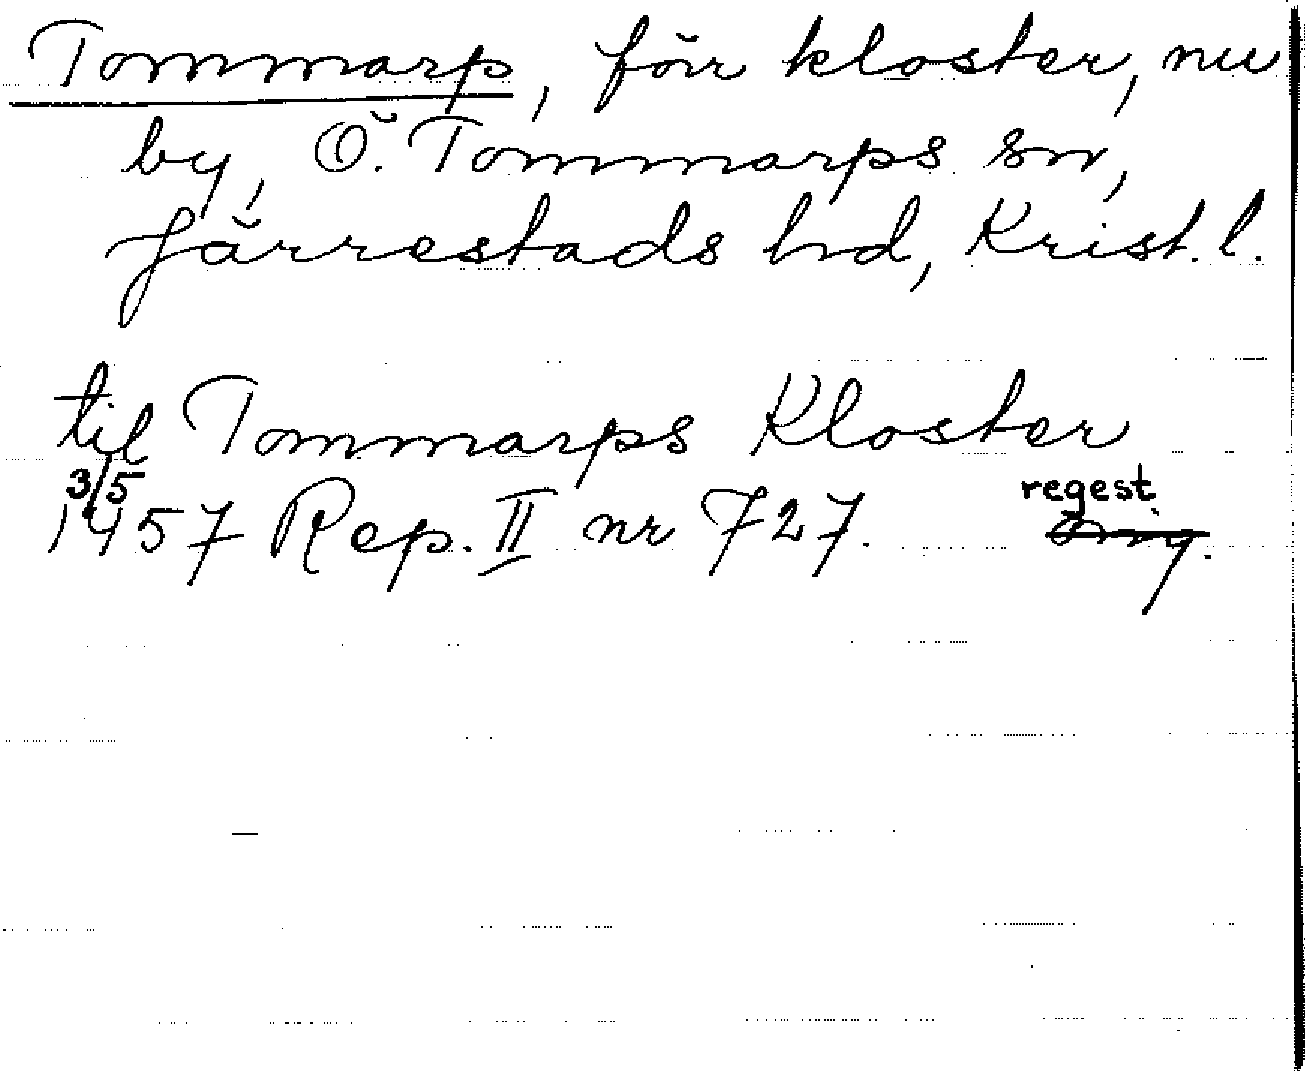 Tommarp, förr kloster, nu
by, Ö. Tommarps sn,
Järrestads hd, Krist. l.
til Tommarps Kloster
3/5
1457 Rep. II nr 727. regest.
orig.